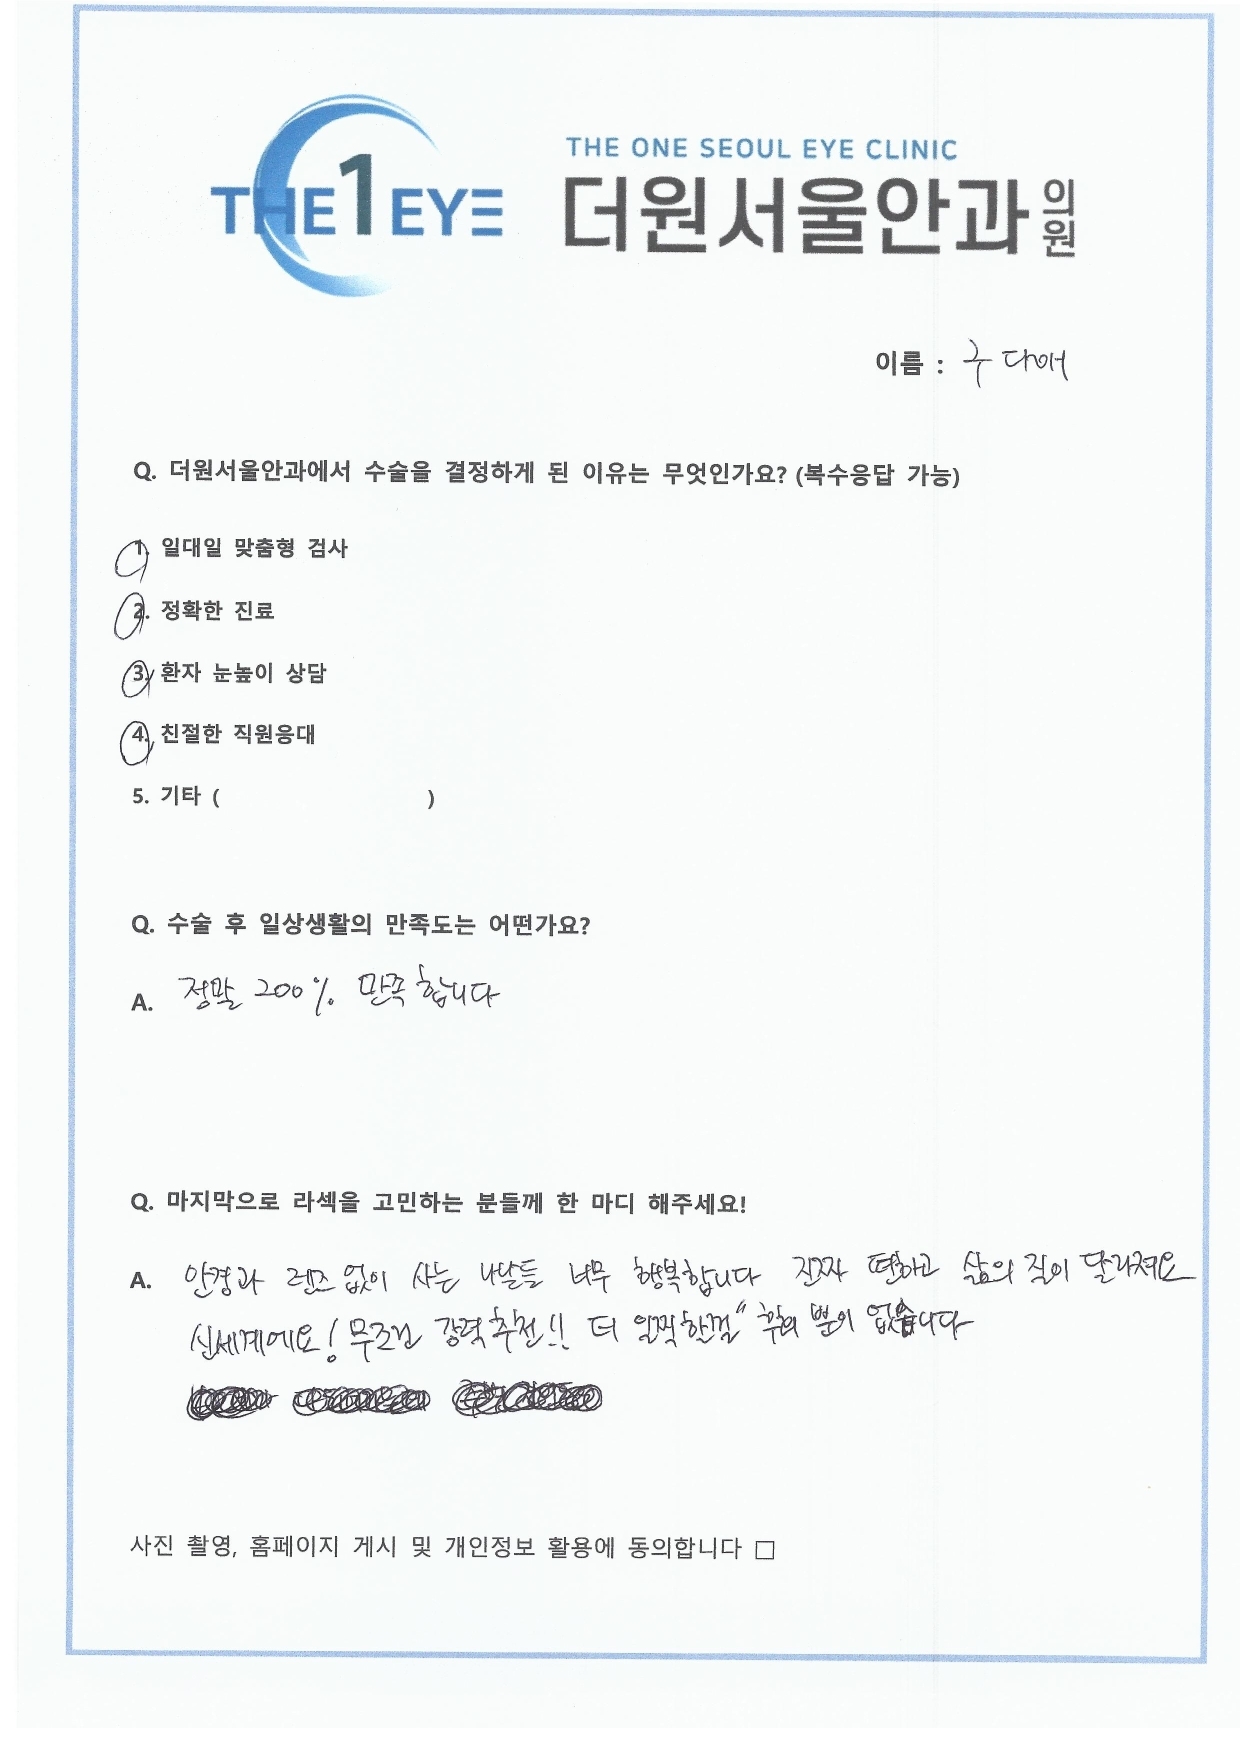 THE1EYE
THE ONE SEOUL EYE CLINIC
더원서울안과의원
이름 : 구 다애
Q. 더원서울안과에서 수술을 결정하게 된 이유는 무엇인가요? (복수응답 가능)
1. 일대일 맞춤형 검사
2. 정확한 진료
3. 환자 눈높이 상담
4. 친절한 직원응대
5. 기타 ( )
Q. 수술 후 일상생활의 만족도는 어떤가요?
A. 정말 200% 만족합니다
Q. 마지막으로 라섹을 고민하는 분들께 한 마디 해주세요!
A. 안경과 렌즈 없이 사는 나날들 너무 행복합니다 진짜 편하고 삶의 질이 달라져요
신세계에요! 무조건 강력추천!! 더 일찍할걸" 후회 뿐이 없습니다
사진 촬영, 홈페이지 게시 및 개인정보 활용에 동의합니다 □